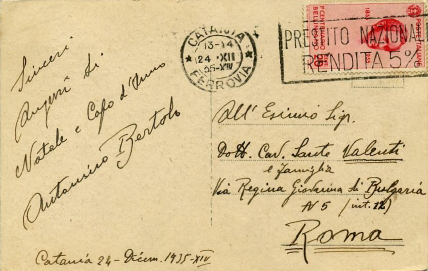 CATANIA
13-14
24 • XII
35-XIV
FERROVIA
PRESTITO NAZIONAL
RENDITA 5%
Sinceri
Auguri di
Natale e Capo d'Anno
Bertolo
All' Esimio Sig.
Dott. Cav. Sante Valenti
e famiglia
Via Regina Giovanna di Bulgaria
N 5 (int. 12)
Roma
Catania 24 - Dicem. 1935-XIV